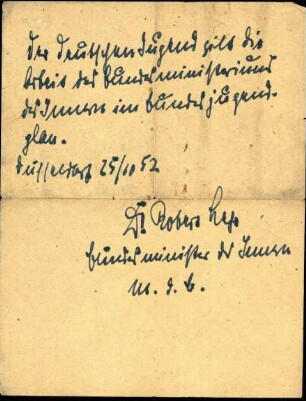 Der Deutschen Jugend gilt die
Arbeit des Bundesministeriums
des Innern im Bundesjugend-
plan.
Düsseldorf 25/10 52
Dr Robert Lehr
Bundesminister des Innern
M. d. B.